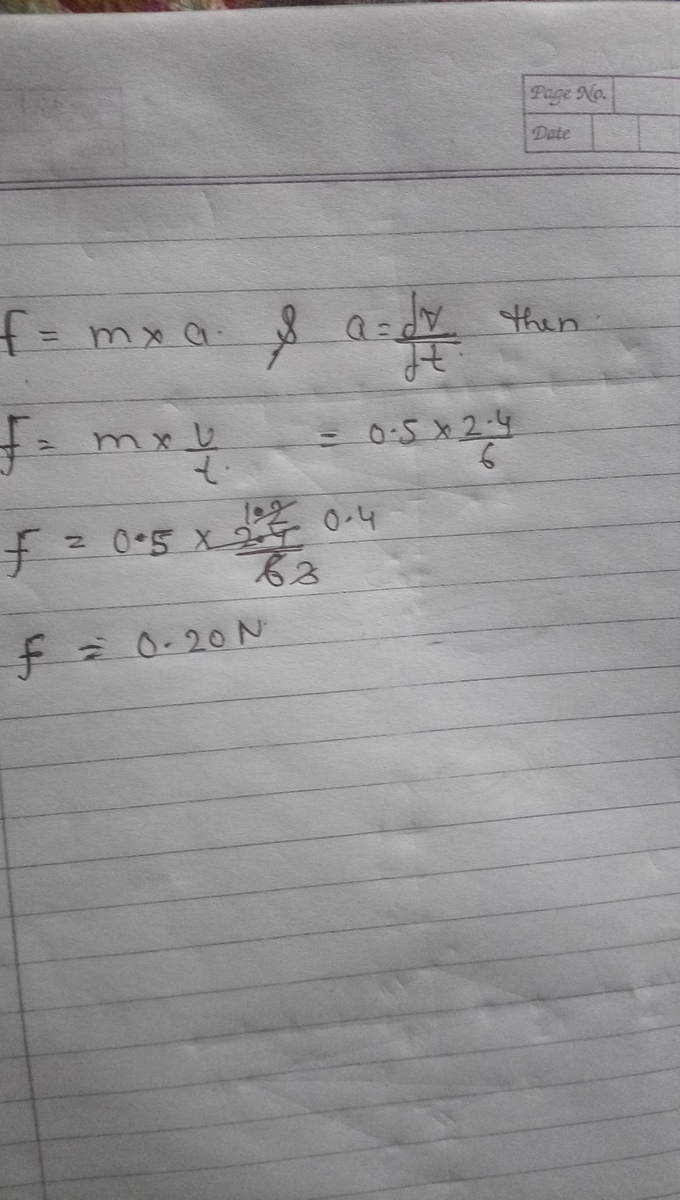 Page No.
Date
f = m x a. & a = dv/dt. then.
f = m x v/t. = 0.5 x 2.4/6
f = 0.5 x 2.4/6 1.2 3 0.4
f = 0.20 N